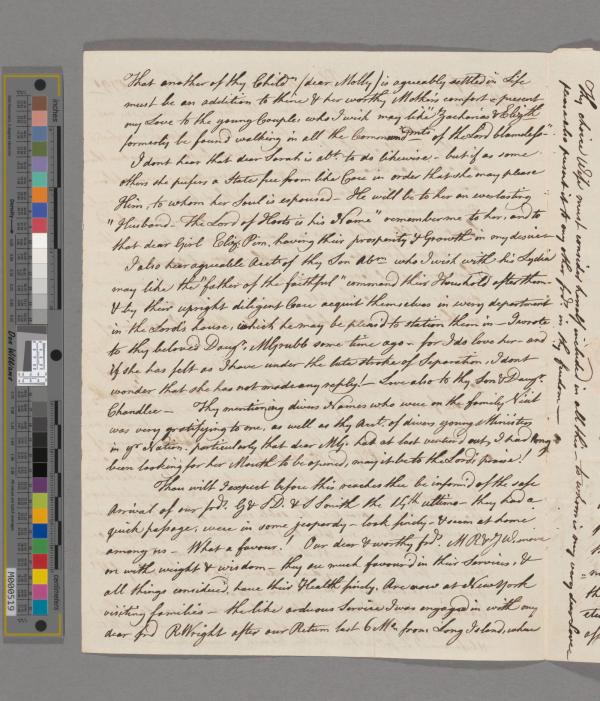 That another of thy Childn (dear Molly) is agreeably settled in Life
must be an addition to thine & her worthy Mother's comfort - present
my Love to the young Couple, who I wish may like "Zacharias & Elizth
formerly be found walking in all the Commandmts of the Lord blameless" -
I dont hear that dear Sarah is abt. to do likewise - but if as some
others she prefers a State free from like Care in order that she may please
Him, to whom her Soul is espoused - He will be to her an everlasting
"Husband - The Lord of Hosts is his Name" remember me to her, and to
that dear Girl Eliz. Pim, having their prosperity & Growth in my desires
I also hear agreeable Acct. of thy Son Abm. who I wish with his Lydia
may like the "father of the faithful" command their Houshold after them -
& by their upright diligent Care acquit themselves in every department
in the Lord's house, which he may be pleas'd to station them in - I wrote
to thy beloved Daugr. M Grubb some time ago - for I do love her - and
if she has felt as I have under the late stroke of Separation, I dont
wonder that she has not made any reply! - Love also to thy Son & Daugr.
Chandlee - Thy mentioning divers Names who were on the family Visit
was very gratifying to me, as well as thy Acct. of divers young Ministers
in yr Nation. particularly that dear had at last ventured out, I had long
been looking for her Mouth to be opened, may it be to the Lord's praise!
Thou wilt I expect before this reaches thee be inform'd of the safe
Arrival of our frds. G & S D. & S Smith the 14th ultimo - they had a
quick passage, were in some jeopardy - look finely - & seem at home
among us - What a favour. Our dear & worthy frds. M R & J W. move
on with weight & wisdom - they are much favour'd in their Services, &
all things considered, have their Health finely. Are now at New York
visiting families - the like arduous Service I was engaged in with my
dear frd R Wright after our Return last 6 Mo. from Long Island, where
Thy choice Wife must consider herself included in all this - to whom is my very dear Love
please also present it to any other frds in thy freedom -